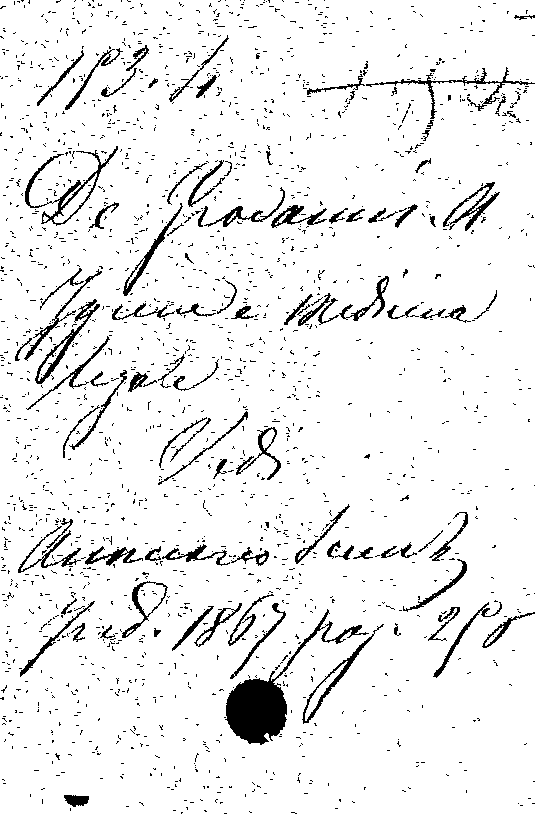 153. h
De Giovanni. A
Igiene e medicina
legale
Vedi
Annuario Scient
Ind. 1867 pag. 250